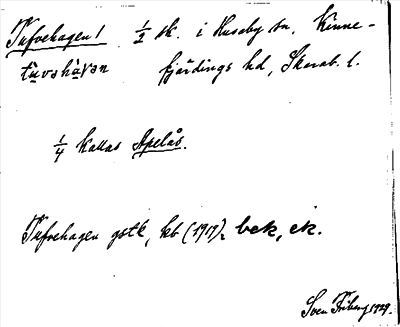 Tufvehagen 1 1/2 sk. i Husaby sn, Kinne-
tùvahàgan fjärdings hd, Skarab. l.
1/4 kallas Apelås.
Tufvehagen gstk, kb (1919), bek, ek.
Sven Friberg 1929.